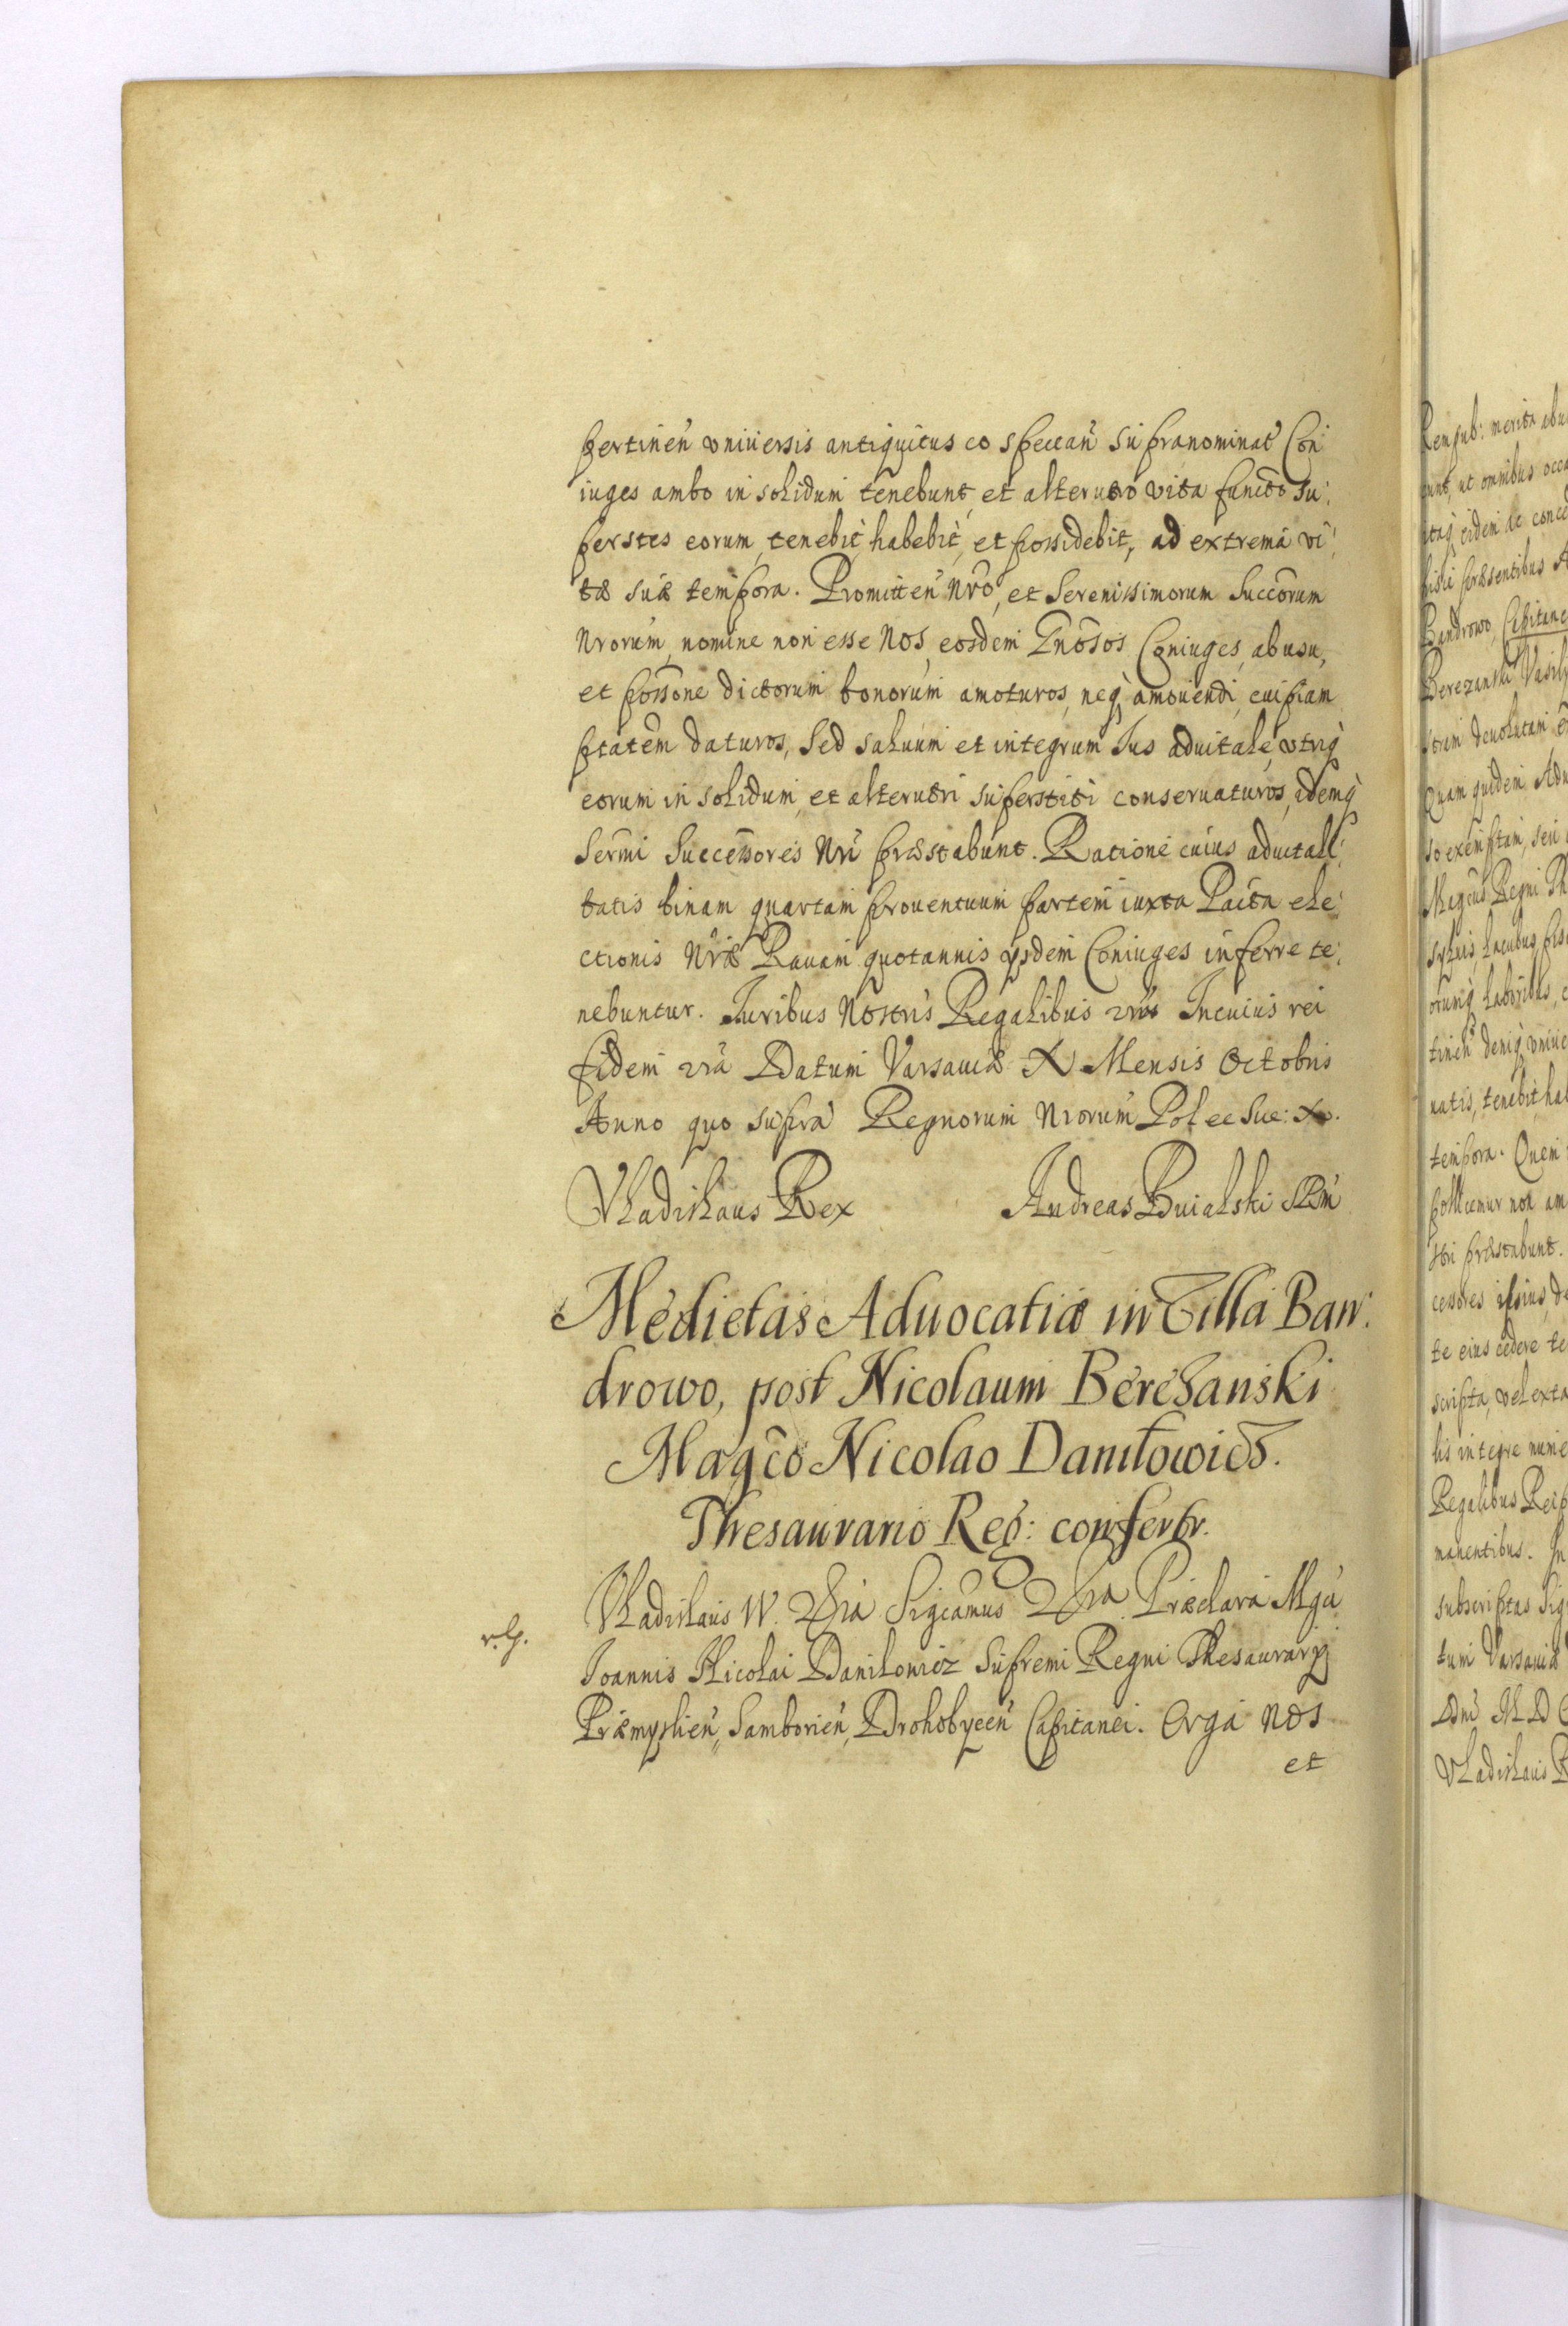 pertineñ vniuersis antiquitus eo spectañ supranominat̃ Con:
iuges ambo in solidum tenebunt, et alterutro vita functo su:
perstes eorum, tenebit, habebit, et possidebit, ad extrema vi:
tæ suæ tempora. Promitteñ Nr̃o, et Serenissimorum Succõrum
Nrorum, nomine non esse Nos, eosdem Gn̄osos Coniuges, ab usu,
et poss̃one dictorum bonorum amoturos, neq amouendi, cuipiam
p̃tatem daturos, Sed saluum et integrum Ius aduitale, vtriq
eorum in solidum, et alterutri superstiti conseruaturos, idemq
Serm̃i Successores Nr̃i præstabunt. Ratione cuius aduitali:
tatis binam quartam prouentuum partem iuxta Pacta ele:
ctionis Nr̃æ Rauam quotannis ijsdem Coniuges inferre te:
nebuntur. Iuribus Nostris Regalibus In cuius rei
fidem Datum Varsauiæ X Mensis Octobris
Anno quo supra Regnorum Nrorum Pol et Sue:
Vladislaus Rex Andreas Buialski
Medietas Aduocatiæ in Villa Ban:
drowo, post Nicolaum Berezanski
Magc̃o Nicolao Daniłowicz.
Thesaurario Reg: confertr.
r. G. Vladislaus IV. Sigc̃amus Præclara Mgci
Ioannis Nicolai Danilowicz Supremi Regni Thesaurarij
Præmyslieñ, Samborieñ, Drohobyceñ Capitanei. Erga Nos
et
Rempub: merita
ut omnibus
itaq eidem
præsentibus
Bandrowo, Capitanea
Berezanski
deuolutam
Quam quidem
exemptam, seu
Magcus Regni
lacubus
laboribus,
denique
tenebit
tempora. Quem
pollicemur non
præstabunt.
ipsius
te eius cedere
scripta, vel
lis integre
Regalibus
manentibus. In
subscriptas
tum Varsauiæ
Dni M D
Vladislaus